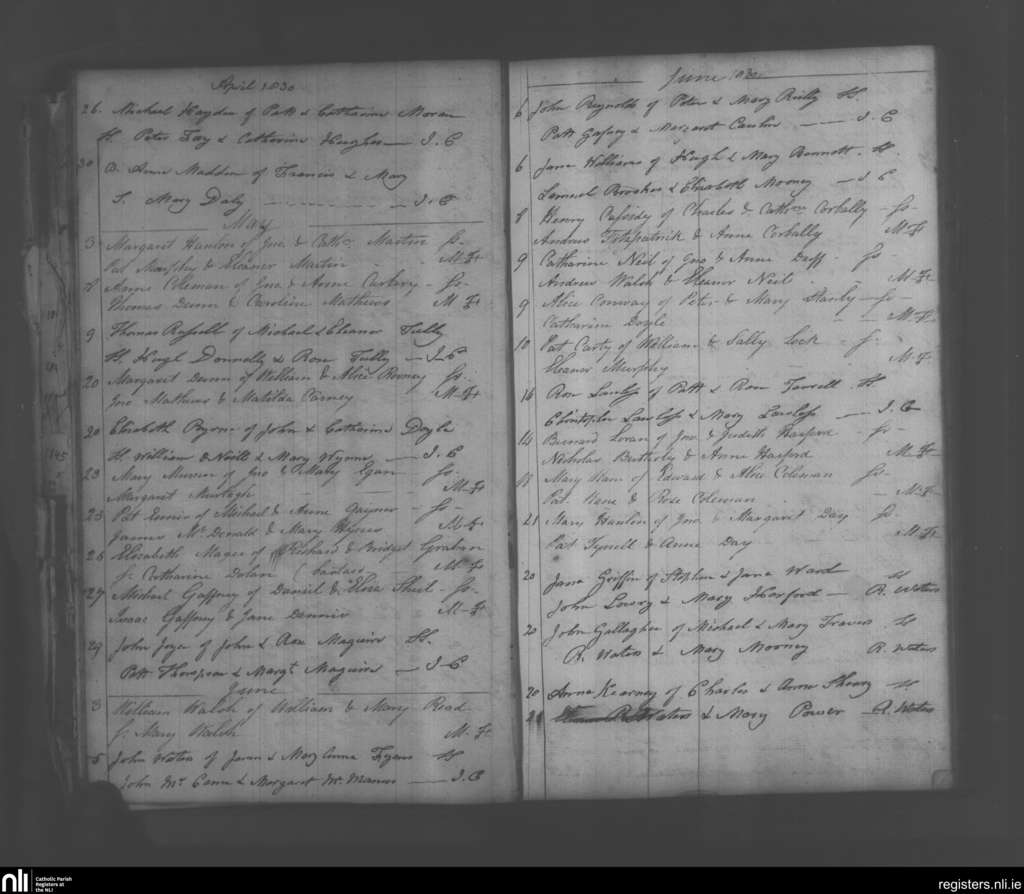 April 1830
26. Michael Hayden of Patt & Catharine Moran
St. Peter Foy & Catharine Hughes — J. C
30 D. Anne Madden of Francis & Mary
S. Mary Daly — J. C
May
3 Margaret Hanlon of Jno. & Cathne Martin Ss.
Pat Murphy & Eleanor Martin M. Ft
Anne Coleman of Jno. & Anne Ss.
Thomas Dunn & Caroline Mathews M. Ft
9 Thomas Russell of Michael & Eleanor Tully
St. Hugh Donnolly & Rose Tully — J. C
20 Margaret Dunn of William & Alice Rooney Ss.
Jno Mathews & Matilda Carney M. Ft
20 Elizabeth Byrne of John & Catharine Doyle
St. William & Mary Wynne — J. C
23 Mary of Jno & Mary Egan Ss.
Margaret M. Ft
25 Pat Ennis of Michael & Anne Gaynor Ss.
James McDonald & Mary Hynes M. Ft
26 Elizabeth Magee of Richard & Bridget Graham
Ss. Catharine Dolan M. Ft
27 Michael Gaffney of Daniel & Eliza Shiel Ss.
Isaac Gaffney & Jane Dennis M. Ft
29 John Joyce of John & Rose Maguire St.
Patt Thompson & Margt. Maguire — J. C
June
3 William Walsh of William & Mary Read
Ss. Mary Walsh M. Ft
5 John Waters of James & Mary Anne St
John McCann & Margaret McManus — J. C
June 1830
6 John Reynolds of Peter & Mary Reilly St.
Patt Gafney & Margaret — J. C
6 Jane Williams of Hugh & Mary Bennett. St.
Samuel & Elizabeth Mooney — J. C
8 Henry Cassidy of Charles & Cathne Corbally Ss.
Andrew Fitzpatrick & Anne Corbally M. Ft
9 Catharine Neil of Jno & Anne Duff Ss
Andrew Walsh & Eleanor Neil M. Ft
9 Alice Conway of Peter & Mary Stanly Ss
Catharine Doyle M. Ft
10 Pat Carty of William & Sally Lock Ss.
Eleanor Murphy M. Ft
14 Rose Lawless of Patt & Rose Farrell St
Christopher Lawless & Mary Lawless — J. C
14 Bernard of Jno. & Judith Harford Ss
Nicholas & Anne Harford M. Ft
Mary of Edward & Alice Coleman Ss
Pat & Rose Coleman M. Ft
21 Mary Hanlon of Jno. & Margaret Day Ss.
Pat Tynell & Anne Day M. Ft
20 Jane Griffin of Stephen & Jane Ward St
John Lowry & Mary Harford — R. Waters
20 John Gallagher of Michael & Mary Travers St
R. Waters & Mary Mooney R. Waters
20 Anne Kearney of Charles & Anne St
R. Waters & Mary Power — R. Waters
nli
Catholic Parish
Registers at
the NLI
registers.nli.ie